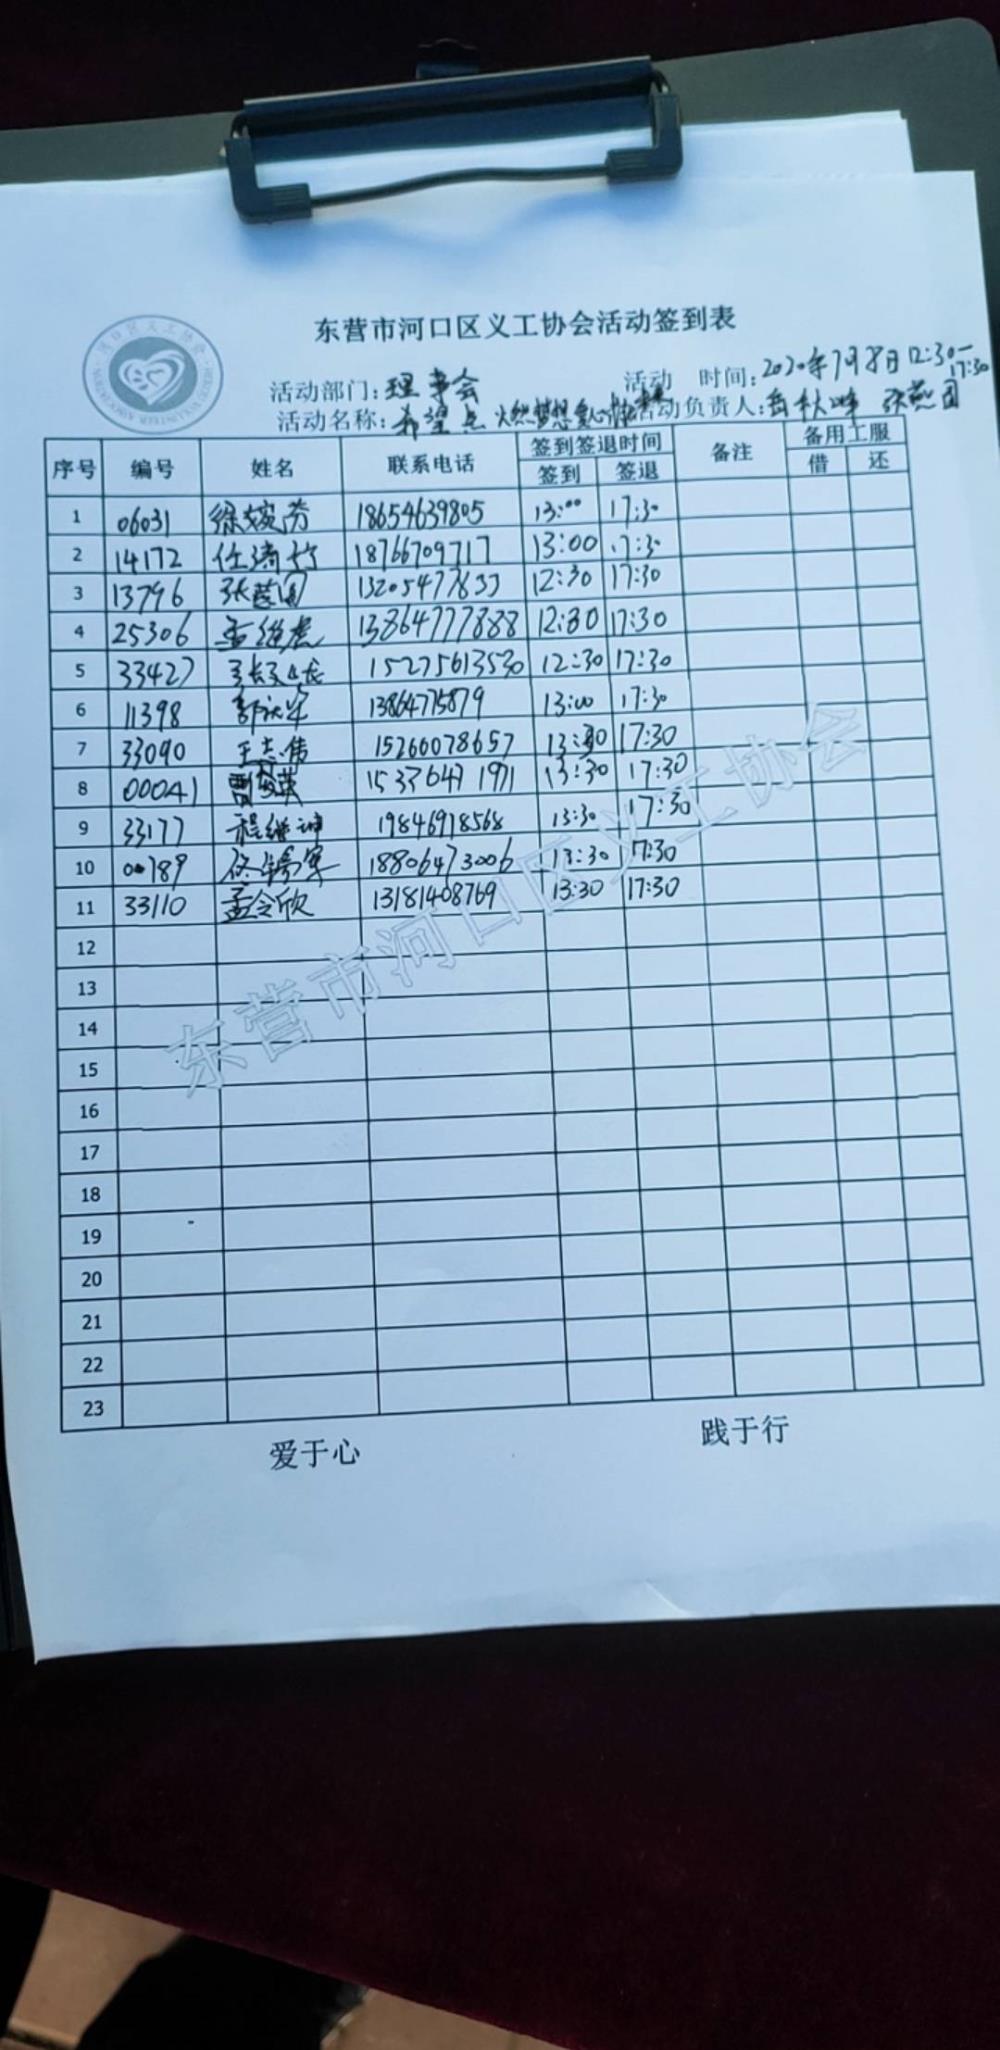 东营市河口区义工协会活动签到表
河口区义工协会
活动部门：理事会 活动 时间：2020年7月8日12:30-17:30
活动名称：希望点燃梦想爱心 活动负责人：岳秋峰 张燕团
序号 编号 姓名 联系电话 签到签退时间 备注 备用工服
签到 签退 借 还
1 06031 徐婉芳 18654639805 13:00 17:30
2 14172 任 18766709717 13:00 17:30
3 13796 张燕团 13205477833 12:30 17:30
4 25306 孟维虎 13864777888 12:30 17:30
5 33427 15275613530 12:30 17:30
6 11398 郭 军 13864775879 13:00 17:30
7 33090 王志伟 15266078657 13:30 17:30
8 00041 曹 英 15336471971 13:30 17:30
9 33177 程继坤 19846918568 13:30 17:30
10 00789 18806473006 13:30 17:30
11 33110 孟令欣 13181408769 13:30 17:30
12
13
14
15
16
17
18
19
20
21
22
23
东营市河口区义工协会
爱于心 践于行